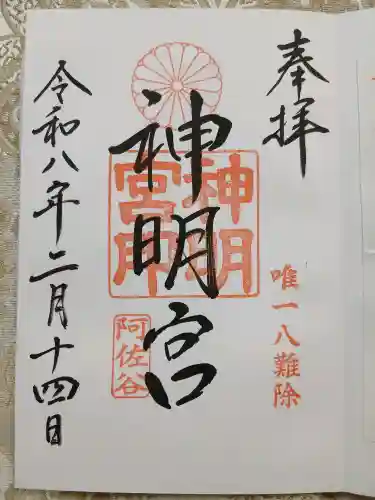 奉拝
唯一八難除
神明宮
神明
宮印
阿佐谷
令和八年二月十四日